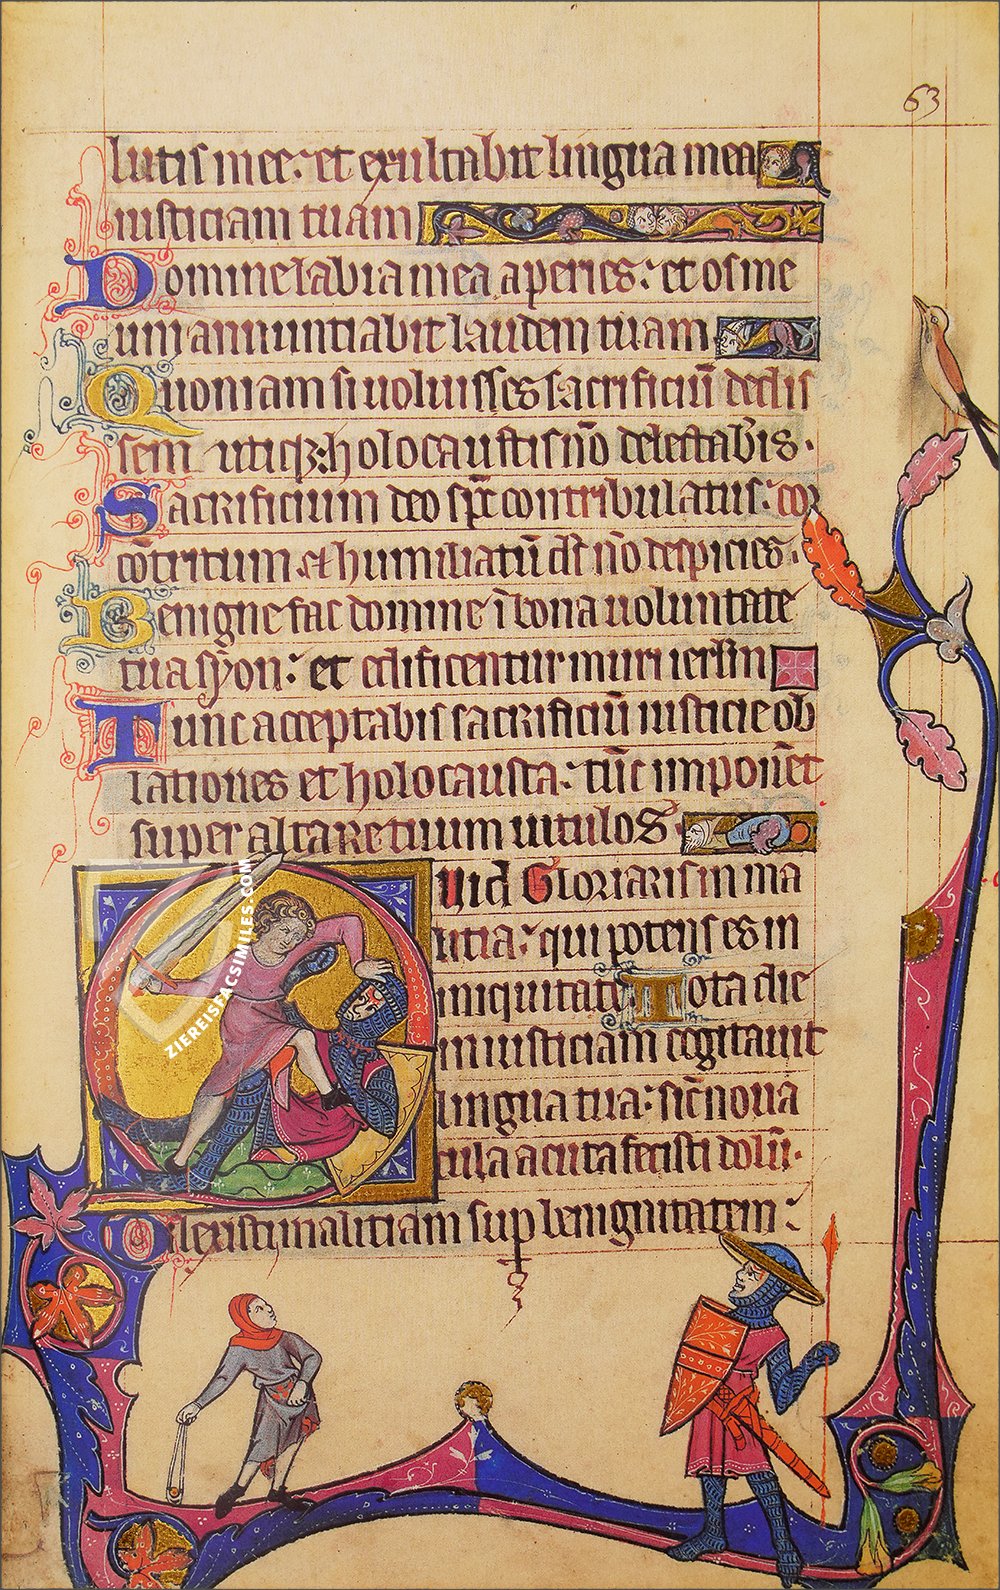 63
lutis mee: et exultabit lingua mea
iusticiam tuam
Domine labia mea aperies: et os me
um annuntiabit laudem tuam
Quoniam si uoluisses sacrificiū dedis
sem utiqꝫ: holocaustis nō delectab̄is.
Sacrificium deo sp̄c contribulatus: cor
cōtritum ⁊ humiliatū ds̄ nō despicies.
Benigne fac domine ī bona uoluntate
tua syon: et edificentur muri ierl̄m
Tunc acceptabis sacrificiū iusticie ob
lationes et holocausta: tūc imponēt
super altare tuum uitulos.
Quid Gloriaris in ma
litia: qui potens es in
iniquitate Tota die
iniusticiam cogitauit
lingua tua: sic̄ noua
cula acuta fecisti dolū.
Dilexisti maliciam sup benignitatem:
ZIEREISFACSIMILES.COM